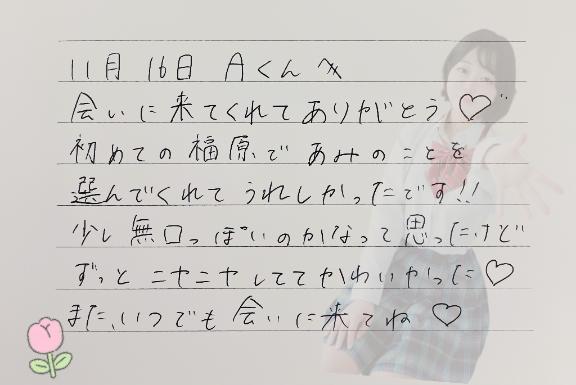 11月 16日 Aくんへ
会いに来てくれてありがとう♡
初めての福原であみのことを
選んでくれてうれしかったです!!
少し無口っぽいのかなって思ったけど
ずっとニヤニヤしててかわいかった♡
また、いつでも会いに来てね♡